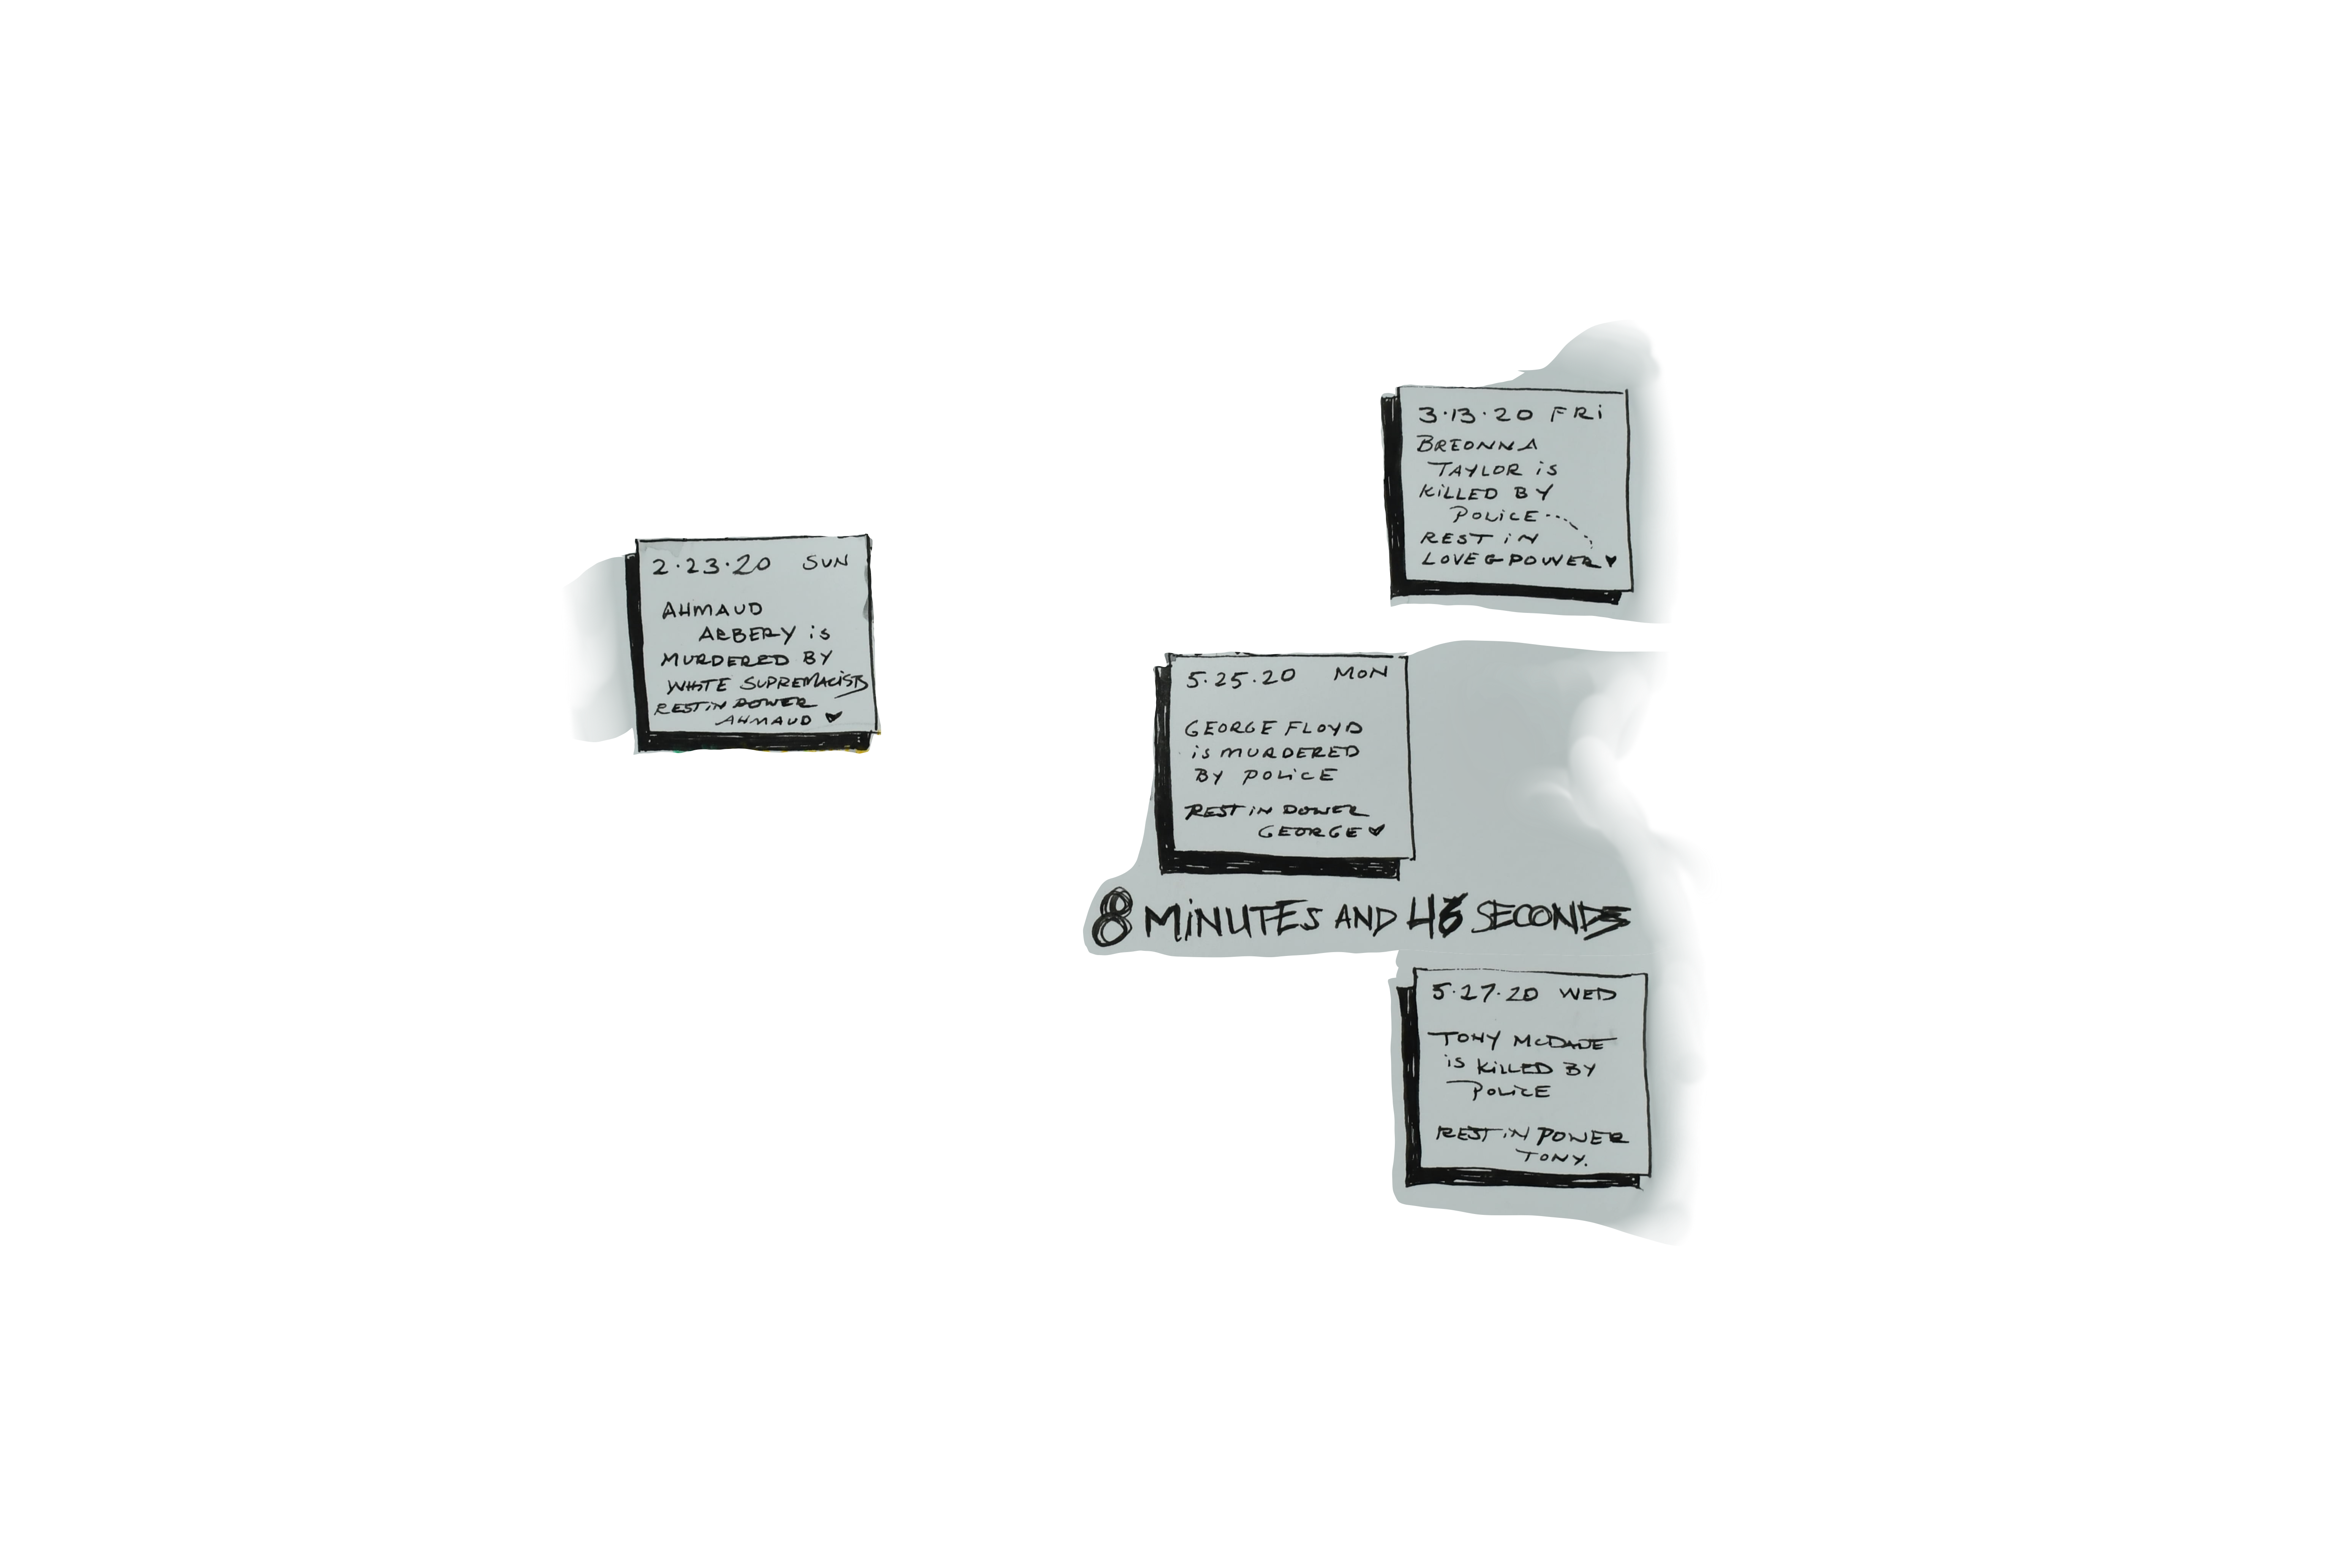 2.23.20 SUN
AHMAUD
ARBERY is
MURDERED BY
WHITE SUPREMACISTS
REST iN POWER
AHMAUD ♥
3.13.20 FRi
BREONNA
TAYLOR is
KiLLED BY
POLiCE
REST iN
LOVE & POWER ♥
5.25.20 MON
GEORGE FLOYD
is MURDERED
BY POLiCE
REST iN POWER
GEORGE ♥
8 MiNUTES AND 46 SECONDS
5.27.20 WED
TONY McDADE
is KiLLED BY
POLiCE
REST iN POWER
TONY.